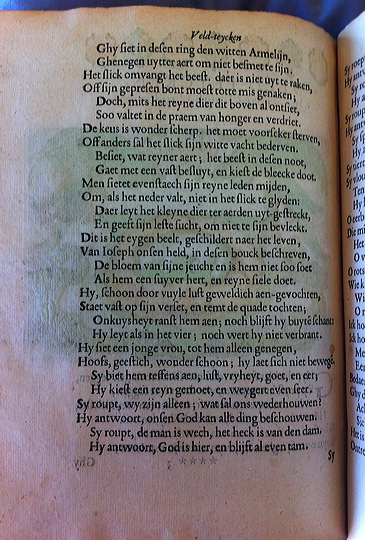 Veld-teycken
Ghy siet in desen ring den witten Armelijn,
Ghenegen uytter aert om niet besmet te sijn.
Het slick omvangt het beest. daer is niet uyt te raken,
Off sijn gepresen bont moest totte mis genaken;
Doch, mits het reyne dier dit boven al ontsiet,
Soo valtet in de praem van honger en verdriet.
De keus is wonder scherp. het moet voorseker sterven,
Off anders sal het slick sijn witte vacht bederven.
Besiet, wat reyner aert; het beest in desen noot,
Gaet met een vast besluyt, en kiest de bleecke doot.
Men sietet evenstaech sijn reyne leden mijden,
Om, als het neder valt, niet in het slick te glyden:
Daer leyt het kleyne dier ter aerden uyt-gestreckt,
En geeft sijn leste sucht, om niet te sijn bevleckt.
Dit is het eygen beelt, geschildert naer het leven,
Van Ioseph onsen held, in desen bouck beschreven,
De bloem van sijne jeucht en is hem niet soo soet
Als hem een suyver hert, en reyne siele doet.
Hy, schoon door vuyle lust geweldich aen-gevochten,
Staet vast op sijn verset, en temt de quade tochten;
Onkuysheyt ranst hem aen; noch blijft hy buytē schant:
Hy leyt als in het vier; noch wert hy niet verbrant.
Hy siet een jonge vrou, tot hem alleen genegen,
Hoofs, geestich, wonder schoon; hy laet sich niet bewegē
Sy biet hem teffens aen, lust, vryheyt, goet, en eer;
Hy kiest een reyn gemoet, en weygert even seer.
Sy roupt, wy zijn alleen; wat sal ons wederhouwen?
Hy antwoort, onsen God kan alle ding beschouwen.
Sy roupt, de man is wech, het heck is van den dam.
Hy antwoort, God is hier, en blijft al even tam.
Sy